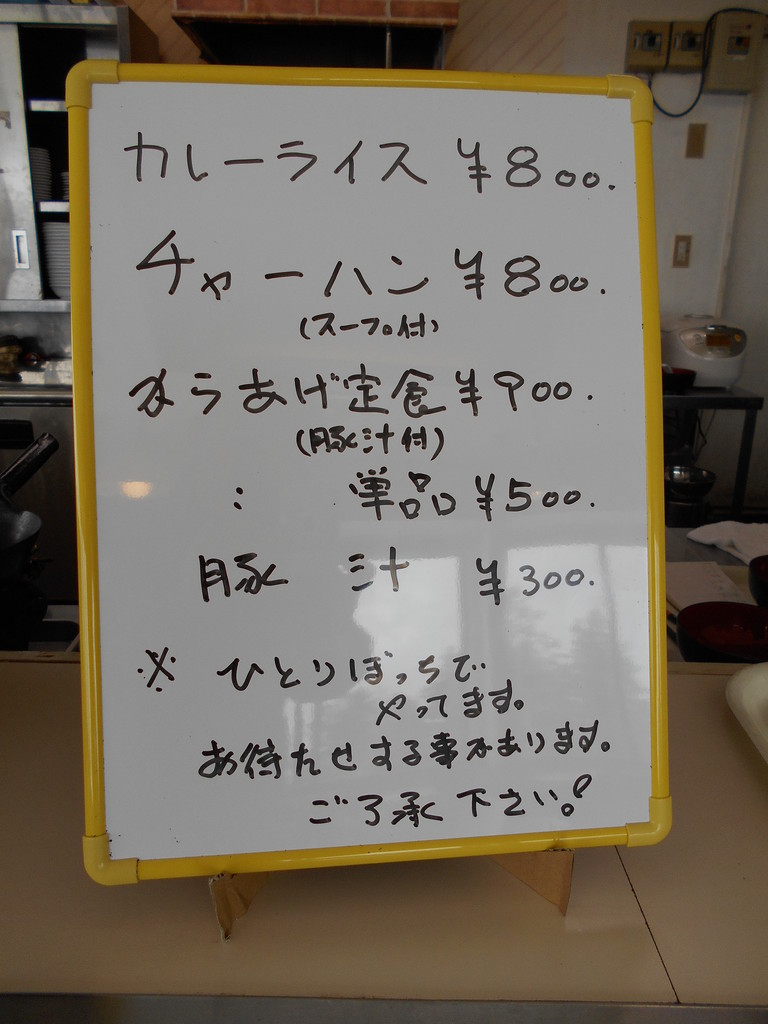 カレーライス ¥800.
チャーハン ¥800.
(スープ付)
からあげ定食 ¥900.
(豚汁付)
: 単品 ¥500.
豚 汁 ¥300.
※ ひとりぼっちで
やってます。
お待たせする事があります。
ご了承下さい!